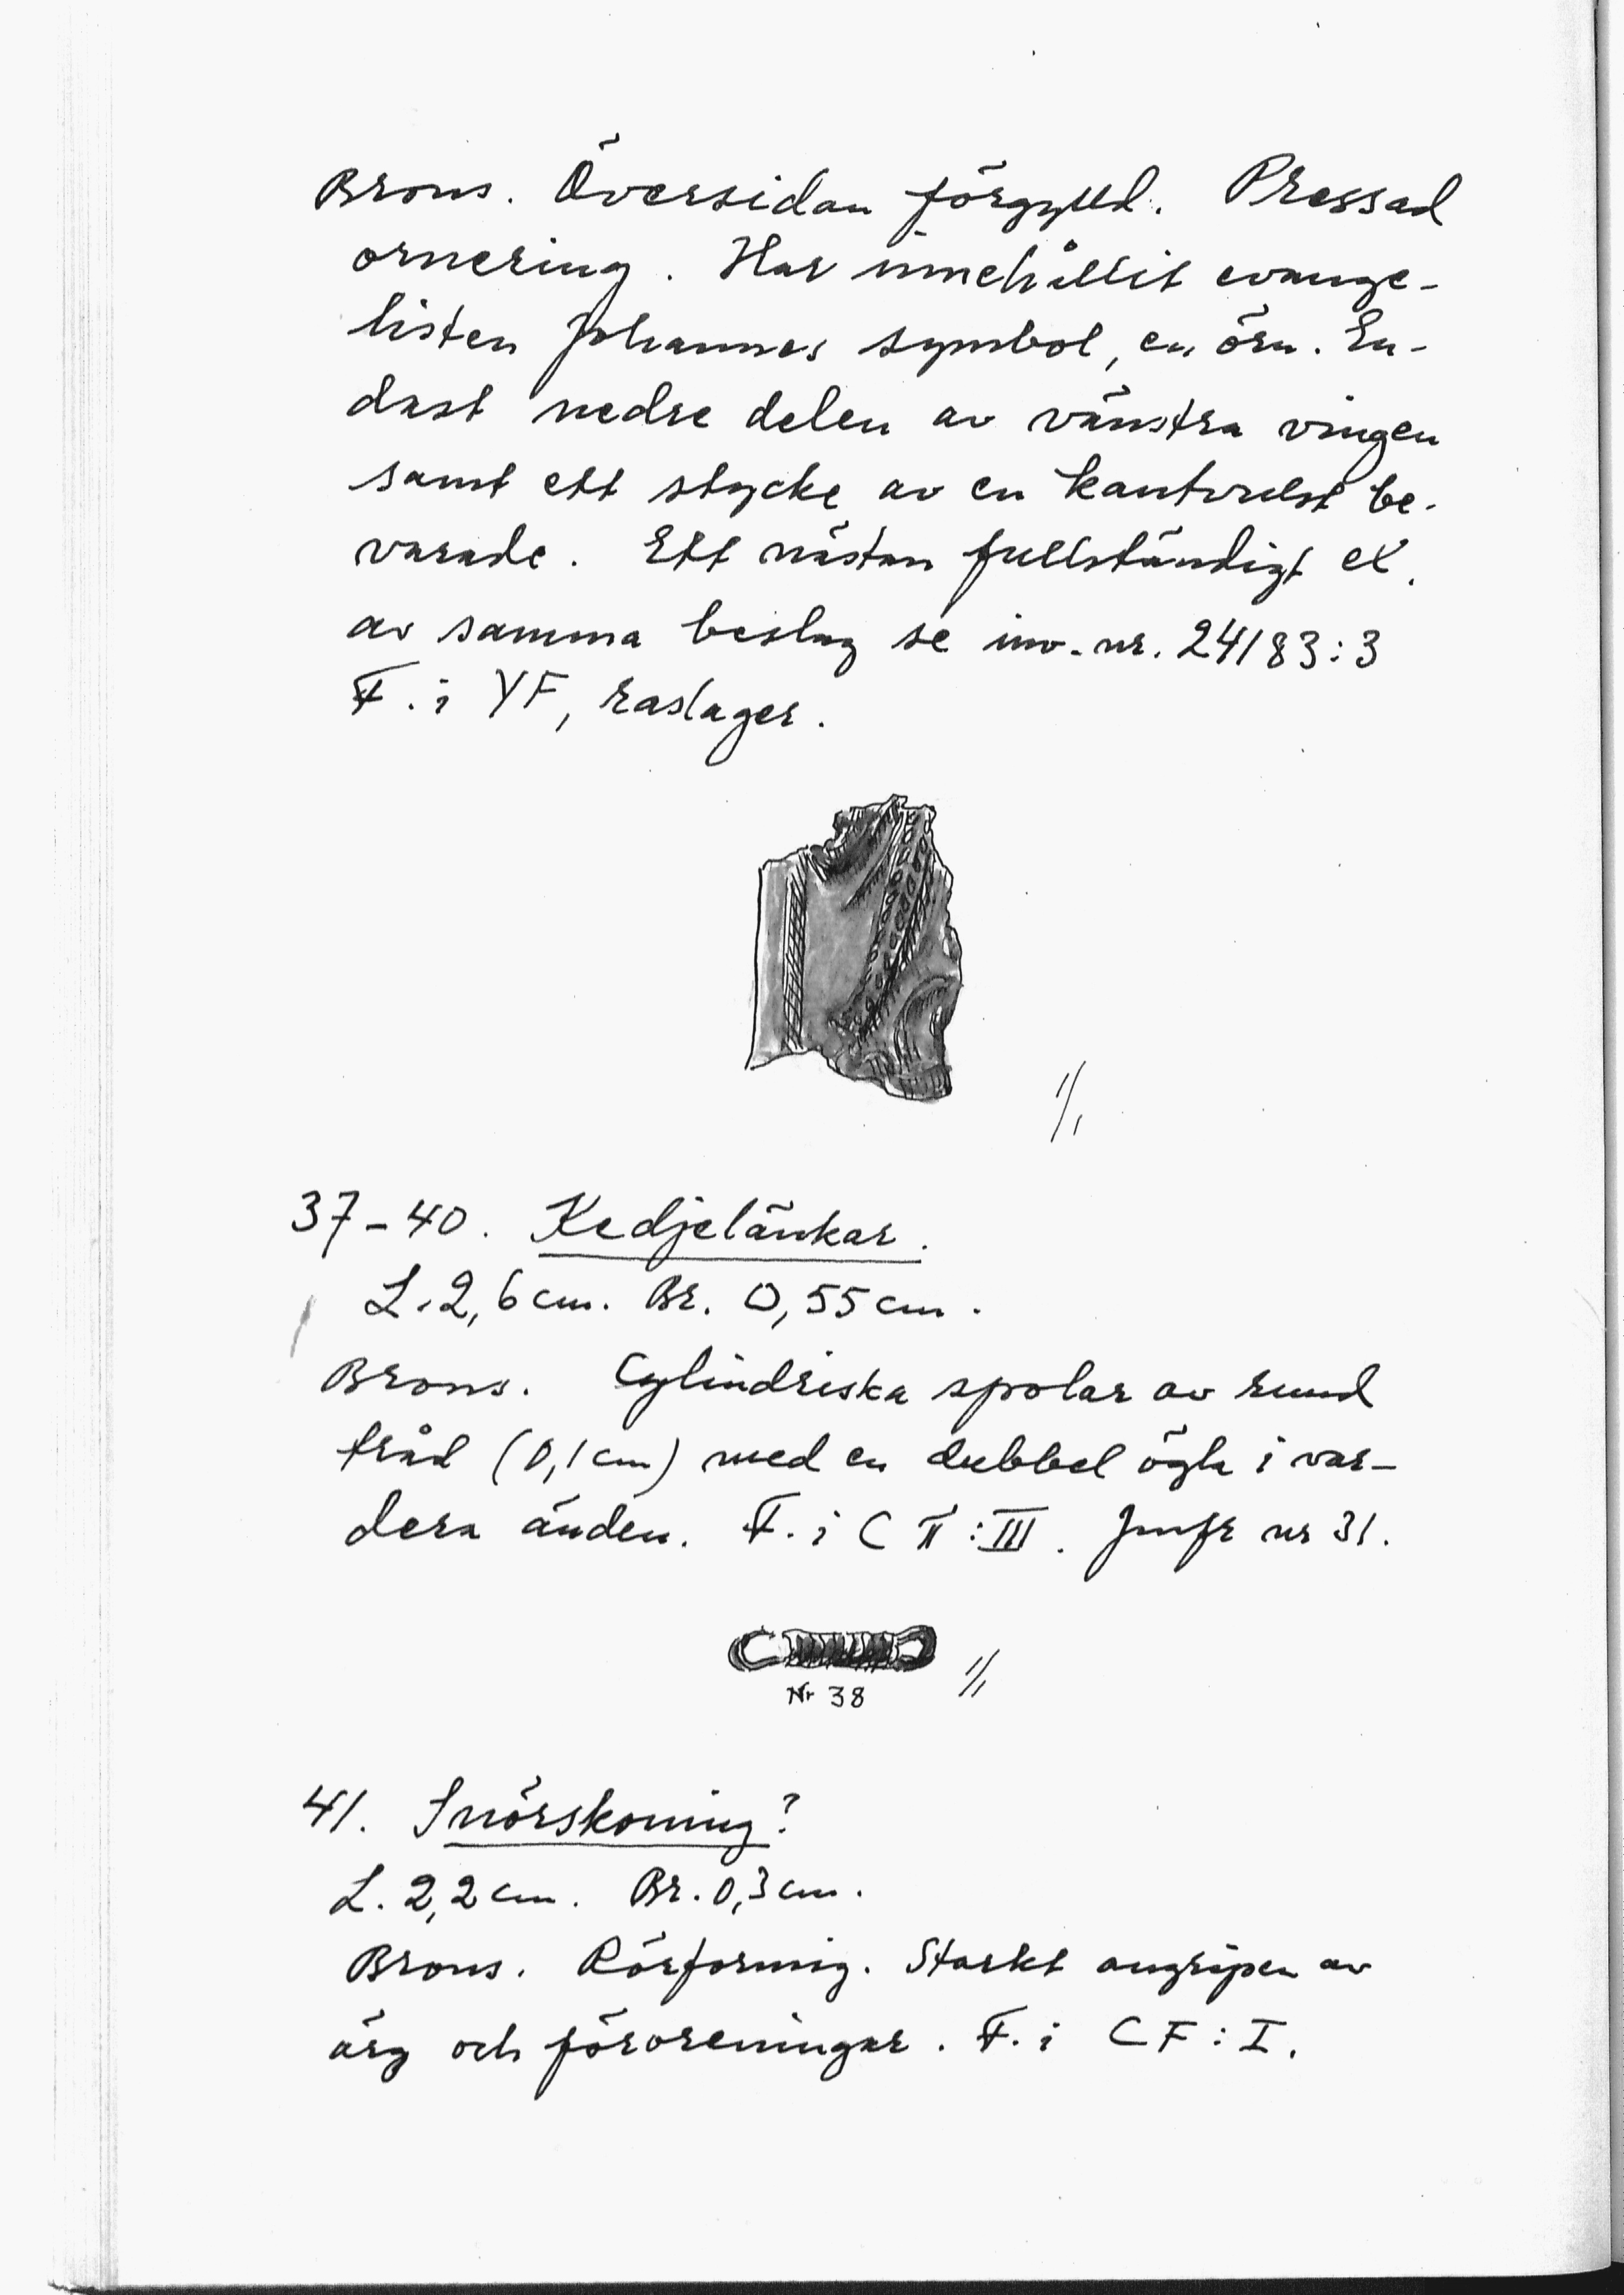 Brons. Översidan förgylld. Pressad
ornering. Har innehållit evange-
listen Johannes symbol, en örn. En-
dast nedre delen av vänstra vingen
samt ett stycke av en kantvulst be-
varade. Ett nästan fullständigt ex.
av samma beslag se inv.nr. 24183:3
F. i YF, raslager.
1/1
37-40. Kedjelänkar.
L. 2,6 cm. Br. 0,55 cm.
Brons. Cylindriska spolar av rund
tråd (0,1 cm) med en dubbel ögla i var-
dera änden. F. i C II:III. Jmfr nr 31.
Nr 38 1/1
41. Snörskoning?
L. 2,2 cm. Br. 0,3 cm.
Brons. Rörformig. Starkt angripen av
ärg och föroreningar. F. i CF:I.